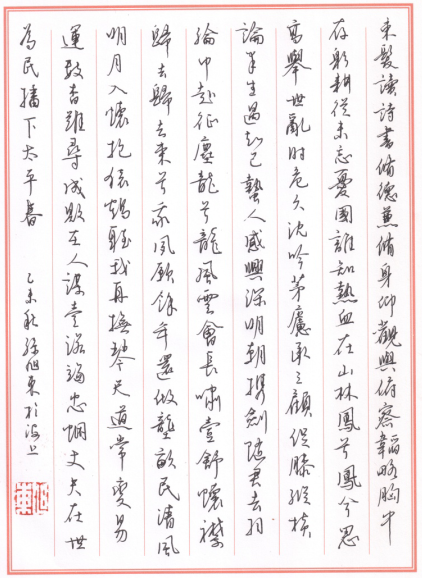 束髮讀詩書脩德兼脩身仰觀與俯察韜略胸中
存躬耕從未忘憂國誰知熱血在山林鳳兮鳳兮思
高舉世亂時危久沈吟茅廬承三顧促膝縱橫
論半生遇知己蟄人感興深明朝攜劍隨君去羽
綸巾赴征塵龍兮龍風雲會長嘯壹舒懷襟
歸去歸去來兮我夙願餘年還做壟畝民清風
明月入懷抱猿鶴聽我再撫琴天道常變易
運數杳難尋成敗在人謀壹諾竭忠悃丈夫在世
為民播下太平春 乙未秋孫旭東於海上